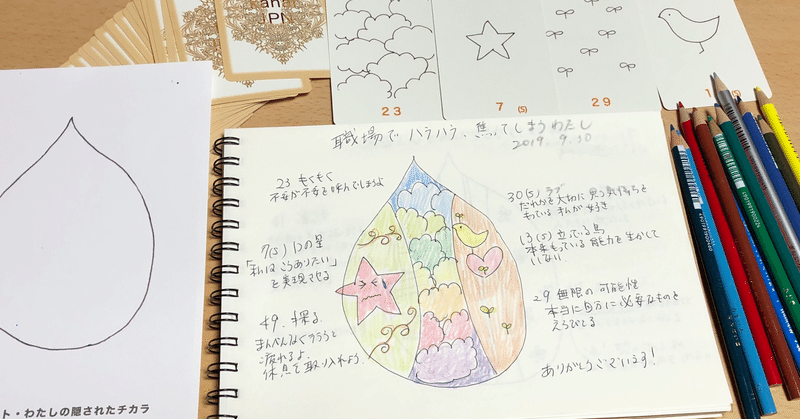 JPN
23
7 (5)
29
職場でハラハラ、焦ってしまうわたし
2019. 9. 30
23 もくもく
不安が不安を呼んでしまうよ
7(5) 1つの星
「私はこうありたい」
を実現させる
49. 探る
まんべんなくやろうと
疲れるよ
休息を取り入れよう
30(5) ラブ
だれかを大切に思う気持ちを
もっている まんが好き
13(5) 立っている鳥
本来もっている能力を生かして
いない
29 無限の可能性
本当に自分に必要なものを
えらびとる
ありがとうございます!
ト・わたしの隠されたチカラ